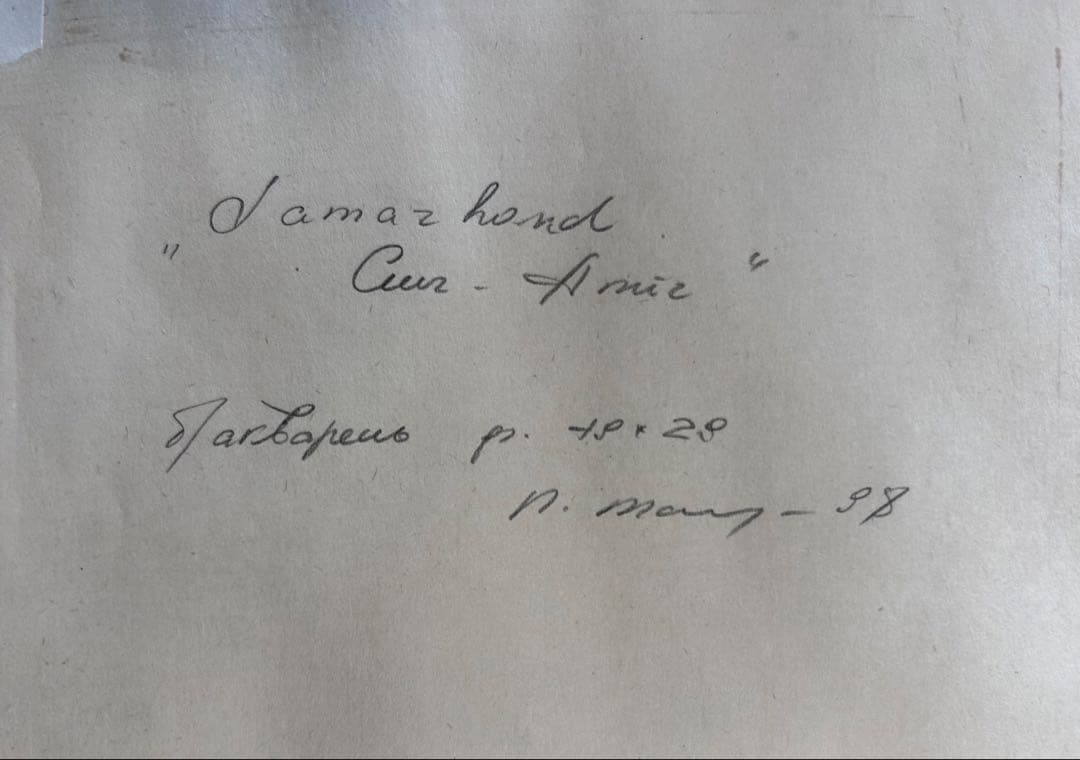 Samarkand
" Gur - Amir "
Б/акварель р. 19 × 29
П. – 98